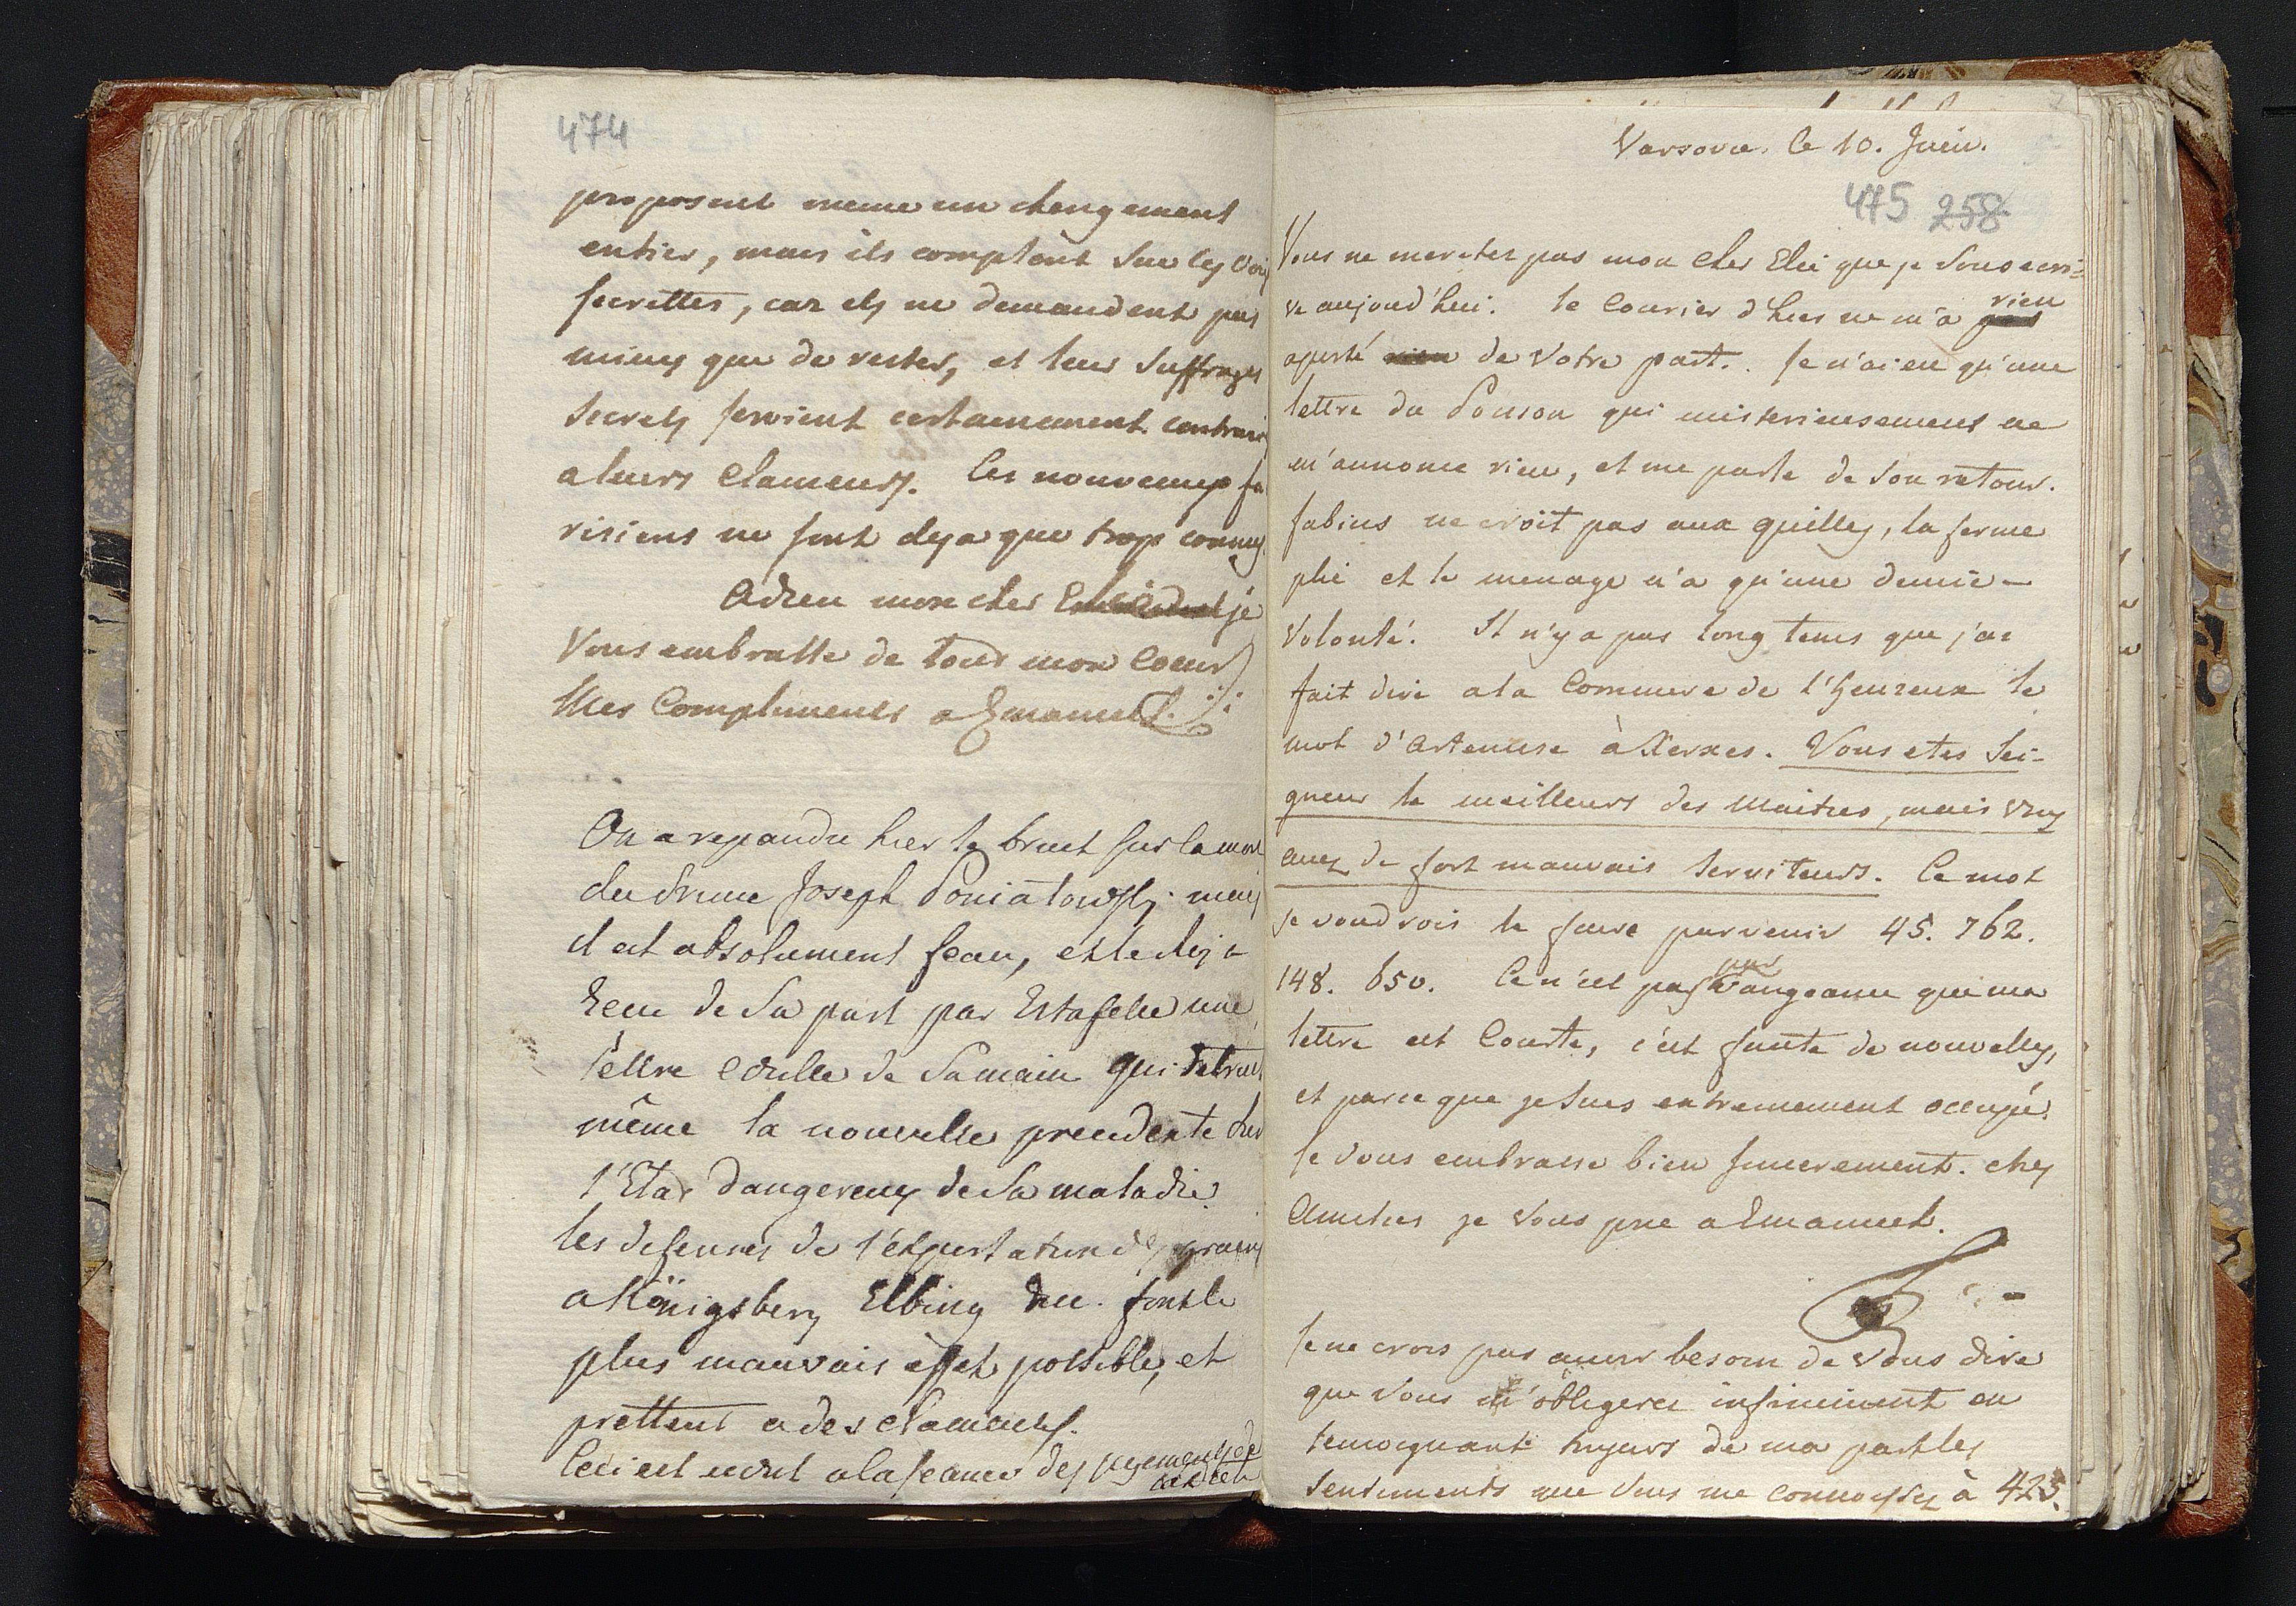 474
proposent meme un changement
entier, mais ils comptent sur les voix
secrettes, car ils ne demandent pas
mieux que de rester, et leur suffrages
secrets seroient certainement contraire
a leurs clameurs. Les nouveaux fa
risiens ne sont deja que trop connus
Adieu mon cher je
Vous embrasse de tout mon Coeur
Mes Compliments a Emanuel.
On a repandu hier le bruit sur la mort
du Prince Joseph Poniatowsky. mais
il est absolument faux, et le
recu de Sa part par Estafette une
lettre ecritte de Sa main qui detruit
même la nouvelle precedente sur
l'Etat dangereux de Sa maladie.
les defenses de l'exportation des grains
a Königsberg Elbing font le
plus mauvais effet possible, et
prettent a des clameurs.
Ceci est ecrit a la seance des
Varsovie. le 10. Juin.
475 258
Vous ne meritez pas mon cher Elie que je Vous ecri-
ve aujourd'hui. le Courier d'hier ne m'a rien
aporté de Votre part. Je n'ai eu qu'une
lettre du Ponson qui misterieusement ne
m'annonce rien, et me parle de son retour.
fabius ne croit pas aux quilles, la ferme
plie et le menage n'a qu'une demie-
Volonté. Il n'y a pas long tems que j'ai
fait dire a la Commere de l'heureux le
mot d'Artemise à Xerxes. Vous etes Sei-
gneur le meilleurs des Maitres, mais Vous
avez de fort mauvais Serviteurs. Ce mot
Je voudrois le faire parvenir 45. 762.
148. 650. Ce n'est pas par vangeance que ma
lettre est Courte, c'est faute de nouvelles,
et parce que je suis extremement occupé.
Je vous embrasse bien sincerement.
Amities je vous prie a Emanuel.
Je ne crois pas avoir besoin de Vous dire
que Vous m'obligerez infiniment en
temoignant tujours de ma part les
Sentiments que Vous me connoissez à 423.